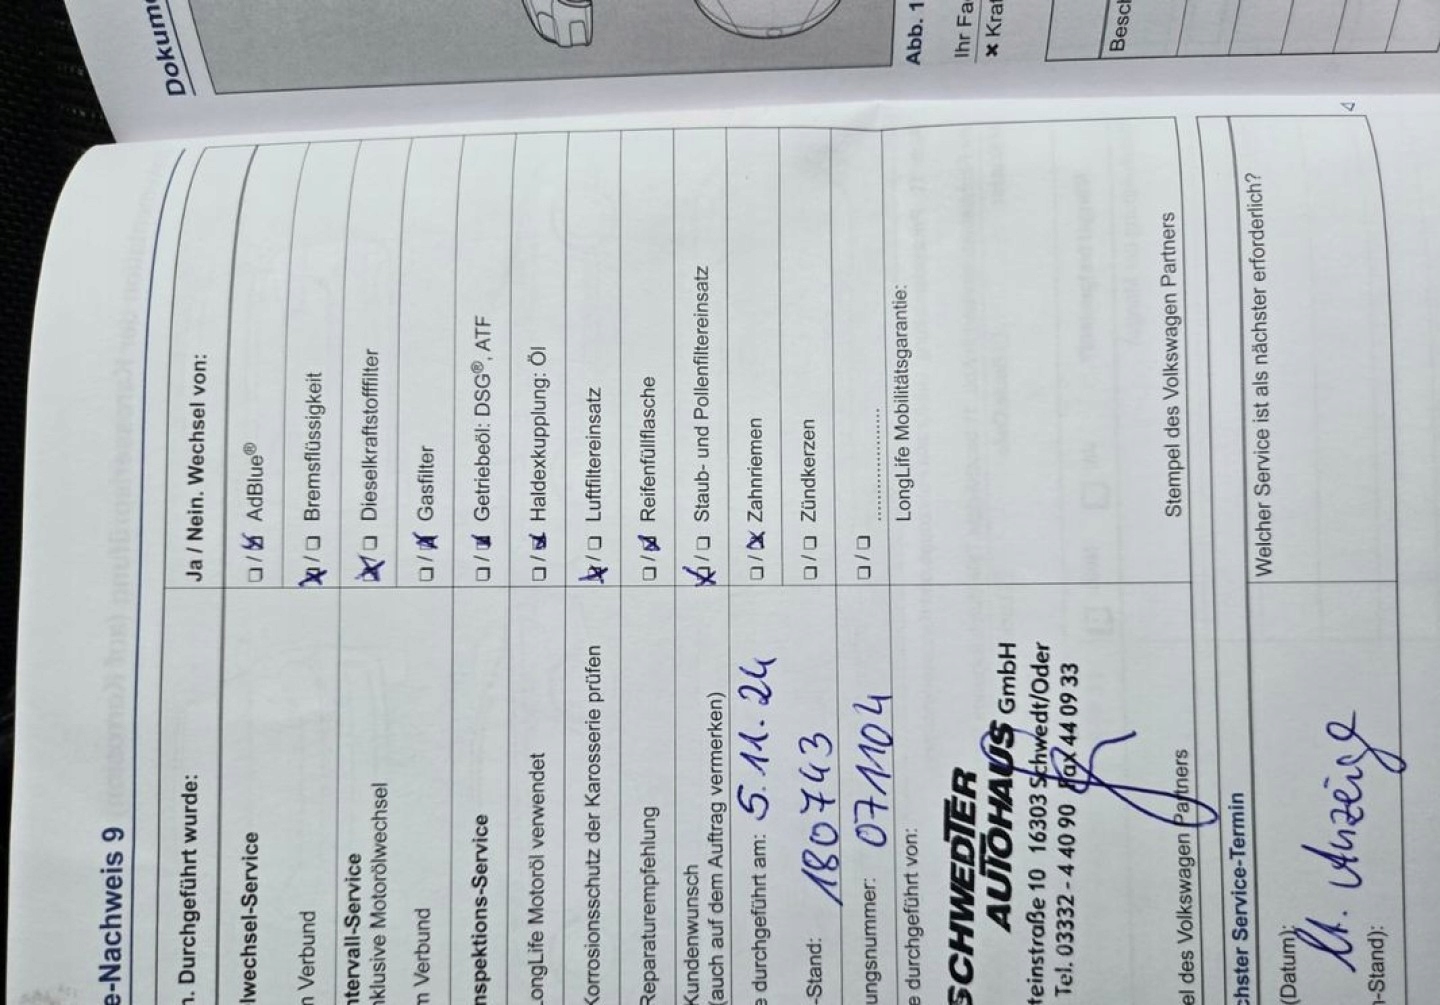 Dokume
Abb. 1
Ihr Fa
× Kraf
Besch
e-Nachweis 9
n. Durchgeführt wurde:
lwechsel-Service
n Verbund
ntervall-Service
nklusive Motorölwechsel
m Verbund
nspektions-Service
LongLife Motoröl verwendet
Korrosionsschutz der Karosserie prüfen
Reparaturempfehlung
Kundenwunsch
(auch auf dem Auftrag vermerken)
e durchgeführt am: 5.11.24
-Stand: 180743
ungsnummer: 071104
e durchgeführt von:
SCHWEDTER
AUTOHAUS GmbH
teinstraße 10 16303 Schwedt/Oder
Tel. 03332 - 4 40 90 Fax 44 09 33
el des Volkswagen Partners
Ja / Nein. Wechsel von:
☐ / ☒ AdBlue®
☒ / ☐ Bremsflüssigkeit
☒ / ☐ Dieselkraftstofffilter
☐ / ☒ Gasfilter
☐ / ☒ Getriebeöl: DSG®, ATF
☐ / ☒ Haldexkupplung: Öl
☒ / ☐ Luftfiltereinsatz
☐ / ☒ Reifenfüllflasche
☒ / ☐ Staub- und Pollenfiltereinsatz
☐ / ☒ Zahnriemen
☐ / ☐ Zündkerzen
☐ / ☐ ....................
LongLife Mobilitätsgarantie:
Stempel des Volkswagen Partners
chster Service-Termin
(Datum):
lt. Anzeige
-Stand):
Welcher Service ist als nächster erforderlich?